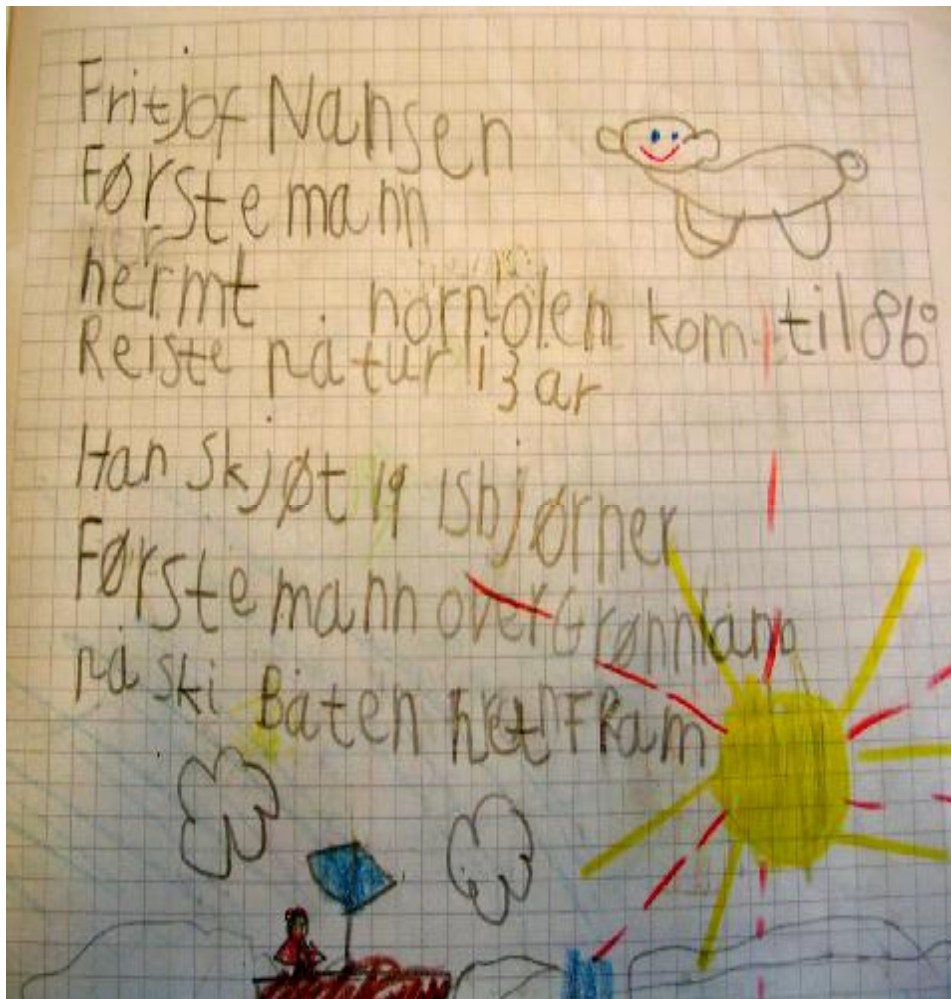 Fritjof Nansen
Første mann
nermt norpolen kom til 86°
Reiste på tur i 3 år
Han skjøt 19 isbjørner
Første mann over Grønnland
på ski Båten het Fram